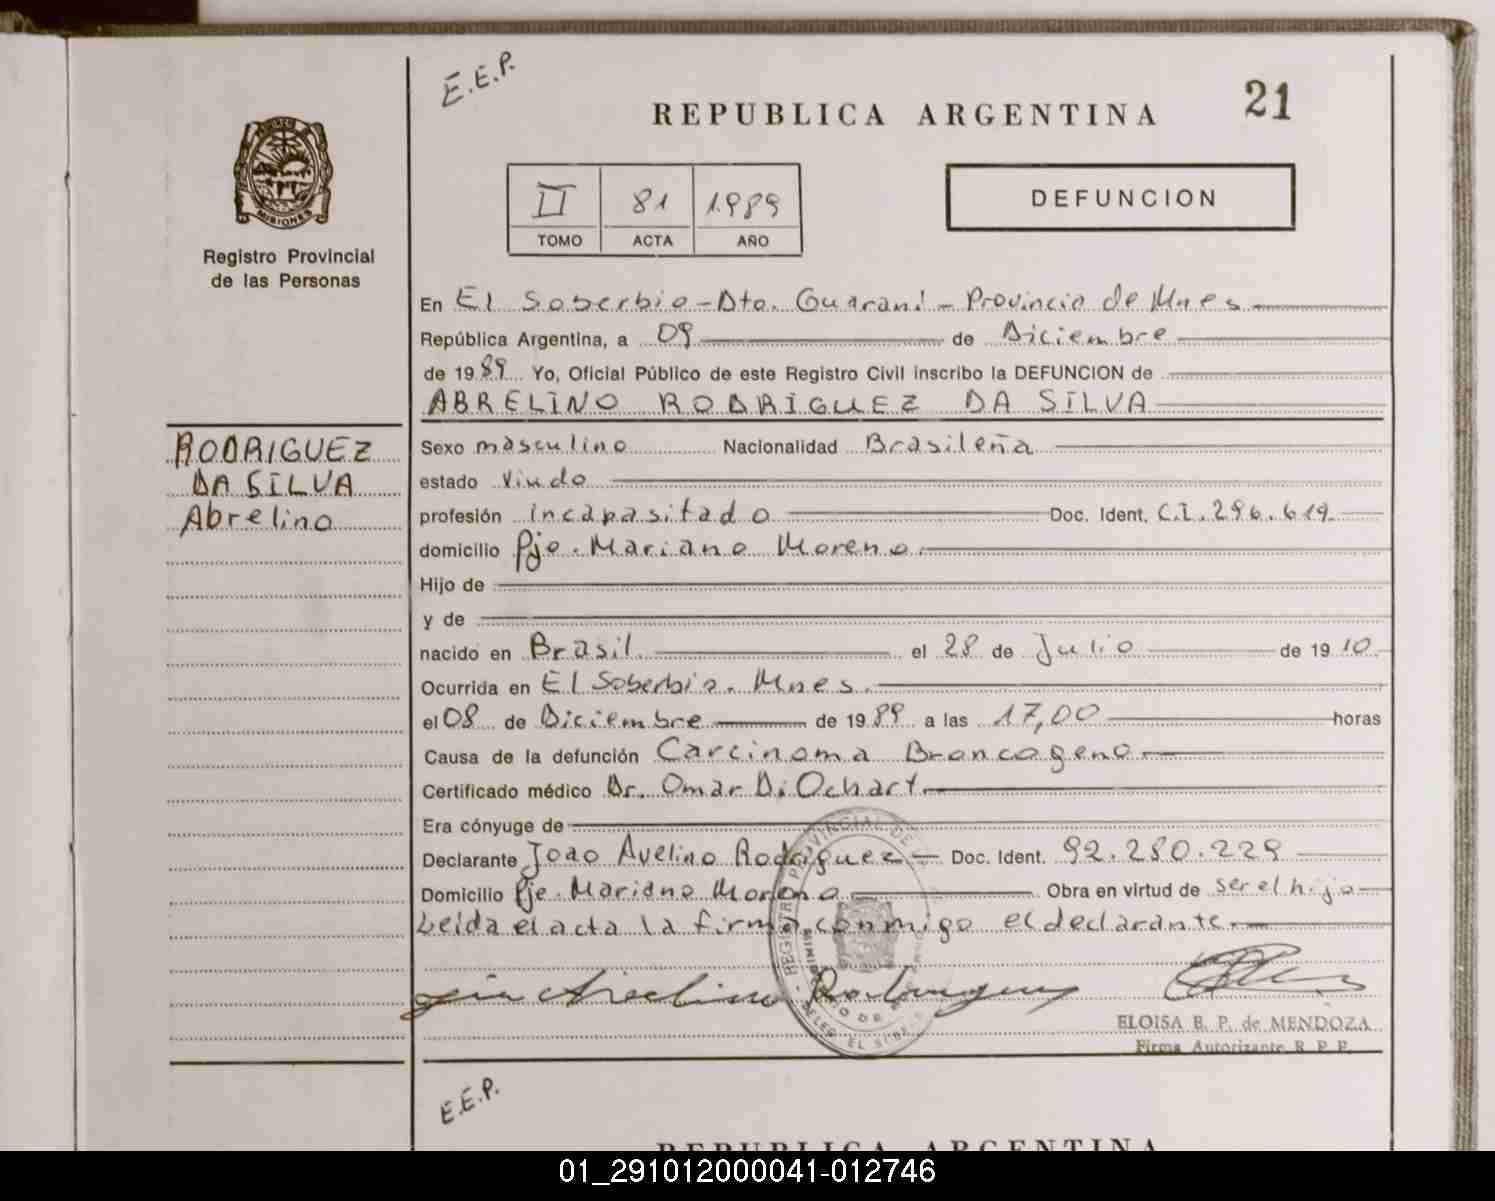 E.E.P.
REPUBLICA ARGENTINA
21
MISIONES
Registro Provincial
de las Personas
II 81 1989
TOMO ACTA AÑO
DEFUNCION
En El Soberbio - Dto. Guaraní - Provincia de Mnes
República Argentina, a 09 de Diciembre
de 1989 Yo, Oficial Público de este Registro Civil inscribo la DEFUNCION de
ABRELINO RODRIGUEZ DA SILVA
RODRIGUEZ
DA SILVA
Abrelino
Sexo masculino Nacionalidad Brasileña
estado Viudo
profesión incapasitado Doc. Ident. C.I. 296.619
domicilio Pje. Mariano Moreno
Hijo de
y de
nacido en Brasil el 28 de Julio de 1910
Ocurrida en El Soberbio. Mnes.
el 08 de Diciembre de 1989 a las 17,00 horas
Causa de la defunción Carcinoma Broncogeno
Certificado médico Dr. Omar D. Ochart.
Era cónyuge de
Declarante Joao Avelino Rodriguez Doc. Ident. 92.280.229
Domicilio Pje. Mariano Moreno Obra en virtud de ser el hijo
Leida el acta la firma conmigo el declarante.
REGISTRO PROVINCIAL DE
Avelino Rodriguez
ELOISA E. P. de MENDOZA
Firma Autorizante R. P. P.
E.E.P.
REPUBLICA ARGENTINA
01_291012000041-012746